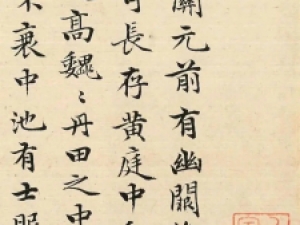 關元前有幽闕
可長存黃庭中
高巍〻丹田之中
衰中池有士服